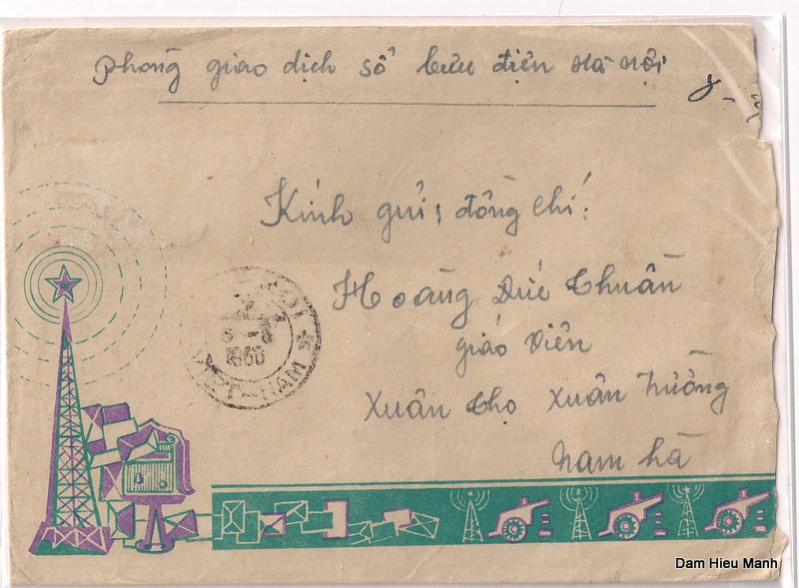 Phòng giao dịch số bưu điện Hà Nội
Kính gửi; đồng chí:
Hoàng Đức Thuần
giáo viên
Xuân Thọ Xuân Trường
Nam hà
NỘI
1966
VIỆT-NAM
Dam Hieu Manh